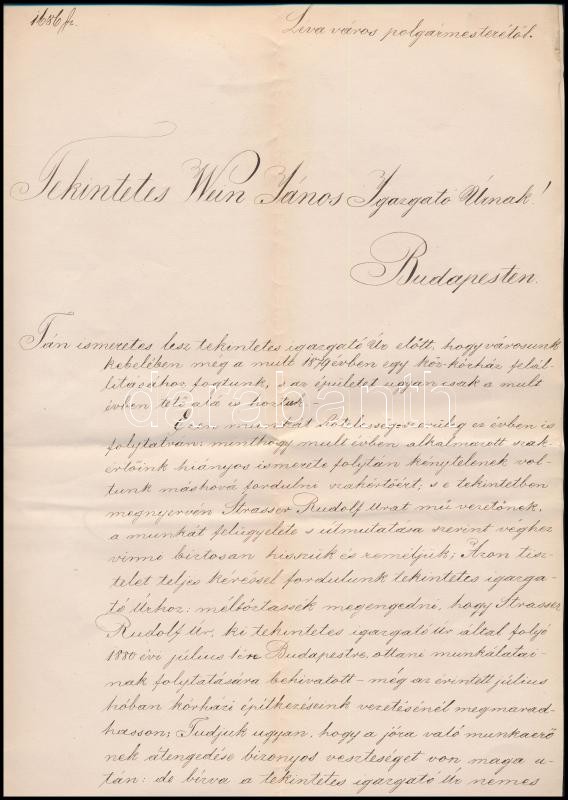 1686/k.
Léva város polgármesterétől.
Tekintetes Wein János Igazgató Úrnak!
Budapesten.
Tán ismeretes lesz tekintetes igazgató Úr előtt, hogy városunk
kebelében még a mult 1879 évben egy kör-kórház felál-
litásához fogtunk, s az épületet ugyan csak a mult
évben tető alá is hoztuk. -
Ezen munkát kötelességszerüleg ez évben is
folytatván; minthogy mult évben alkalmazott szak-
értőink hiányos ismerete folytán kénytelenek vol-
tunk máshová fordulni szakértőért; s e tekintetben
megnyervén Strasser Rudolf Urat mű vezetőnek,
a munkát felügyelete s útmutatása szerint véghez
vinni biztosan hisszük és reméljük; Azon tisz-
telet teljes kéréssel fordulunk tekintetes igazga-
tó Úrhoz: méltóztassék megengedni, hogy Strasser
Rudolf Úr, ki tekintetes igazgató Úr által folyó
1880 évi július 1én Budapestre, ottani munkálatai-
nak folytatására behivatott - még az érintett július
hóban kórházi építkezéseink vezetésénél megmarad-
hasson; Tudjuk ugyan, hogy a jóra való munkaerő
nek átengedése bizonyos veszteséget von maga u-
tán: de bízva a tekintetes igazgató Úr nemes
darabanth